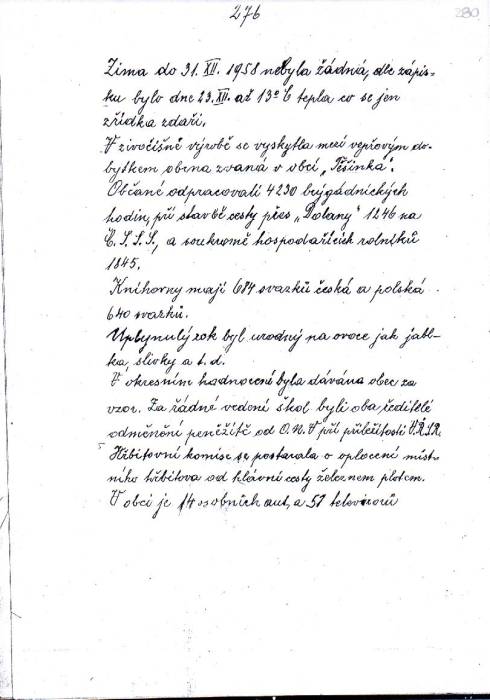 276
280
Zima do 31. XII. 1958 nebyla žádná, dle zápis-
ku bylo dne 23. XII. až 13° C tepla co se jen
zřídka zdaří.
V živočišné výrobě se vyskytla mezi vepřovým do-
bytkem obrna zvaná v obci „Těšinká".
Občané odpracovali 4230 brygádnických
hodin, při stavbě cesty přes „Dolany" 1246 na
Č.S.S.S., a soukromě hospodařících rolníků
1845.
Knihovny mají 684 svazků česká a polská
640 svazků.
Uplynulý rok byl urodný na ovoce jak jabl-
ka, slivky a t. d.
V okresním hodnocení byla dávána obec za
vzor. Za řádné vedení škol byli oba ředitelé
odměněni peněžitě od O.N.V při příležitosti V.Ř.S.R.
Hřbitovní komise se postarala o oplocení míst-
ního hřbitova od hlavní cesty železnem plotem.
V obci je 14 osobních aut, a 51 televizorů